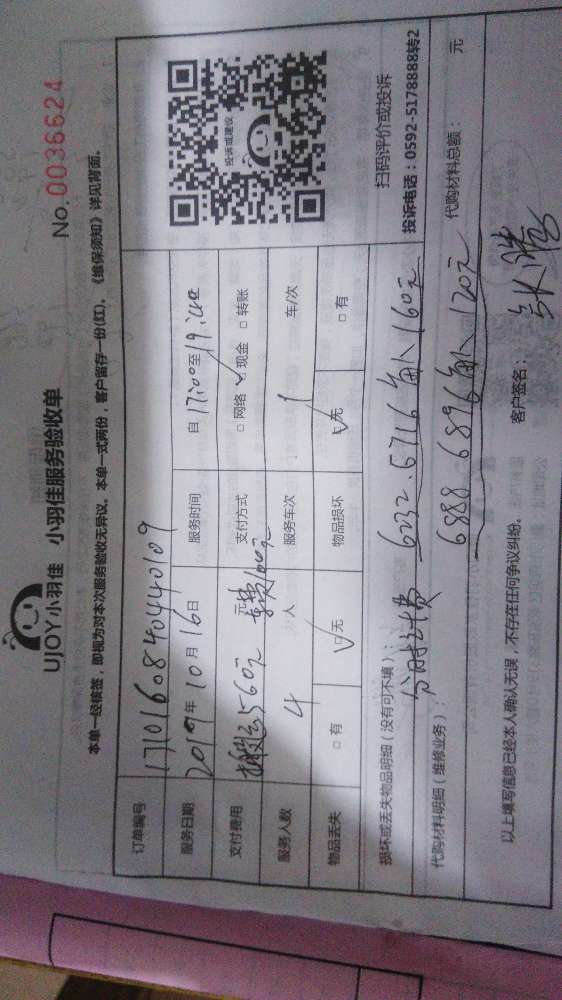 UJOY小羽佳 小羽佳服务验收单
No.0036624
本单一经核签，即视为对本次服务验收无异议。本单一式两份，客户留存一份(红)。《维保须知》详见背面。
订单编号 1710160840440109
服务日期 2017年10月16日 服务时间 自17:00至19:40
支付费用 搬运560元 车费100元 元 支付方式 □网络 ☑现金 □转账
服务人数 4 人 服务车次 1 车/次
物品丢失 □有 ☑无 物品损坏 ☑无 □有
投诉或建议
扫码评价或投诉
投诉电话：0592-5178888转2
损坏或丢失物品明细（没有可不填）：
分时计费 6232.6716 每人160元
代购材料明细（维修业务）：
6888 6896 每人120元
代购材料总额： 元
以上填写信息已经本人确认无误，不存在任何争议纠纷。
客户签名：